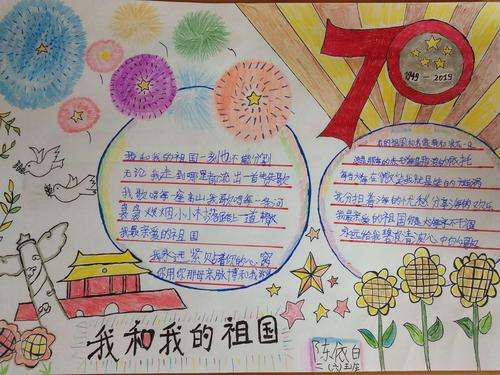 70
1949-2019
我和我的祖国一刻也不能分割
无论我走到哪里都流出一首赞歌
我歌唱每一座高山我歌唱每一条河
袅袅炊烟小小村落路上一道辙
我最亲爱的祖国
我永远紧贴着你的心窝
你用你那母亲脉博和我
我的祖国和我像海和浪花一朵
浪是那海的赤子海是那浪的依托
每当大海在微笑我就是笑的旋涡
我分担着海的忧愁分享海的欢乐
我最亲爱的祖国你是大海永不干涸
永远给我碧浪清波心中的歌
我和我的祖国
陈依白
二(六)班